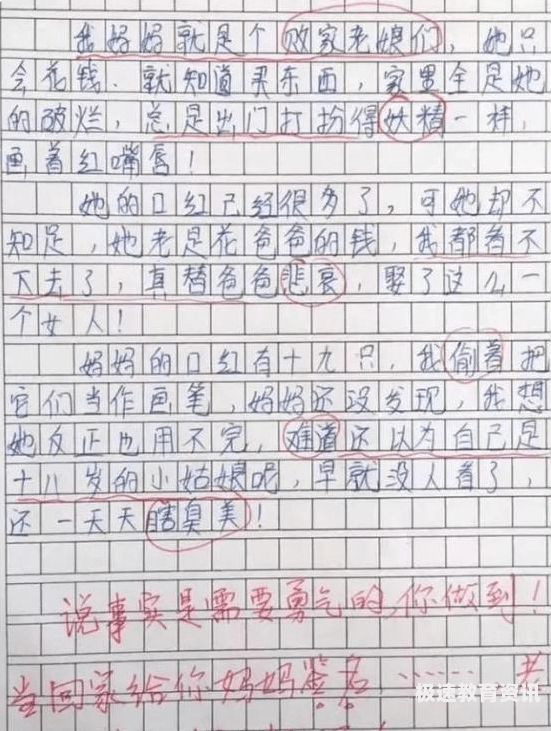 我妈妈就是个败家老娘们，她只
会花钱、就知道买东西，家里全是她
的破烂，总是出门打扮得妖精一样，
画着红嘴唇！
她的口红已经很多了，可她却不
知足，她老是花爸爸的钱，我都看不
下去了，真替爸爸悲哀，娶了这么一
个女人！
妈妈的口红有十九只，我偷着把
它们当作画笔，妈妈还没发现，我想
她反正也用不完，难道还以为自己是
十八岁的小姑娘呢，早就没人看了，
还一天天瞎臭美！
说事实是需要勇气的，你做到！
当回家给你妈妈签名…… 老
极速教育资讯